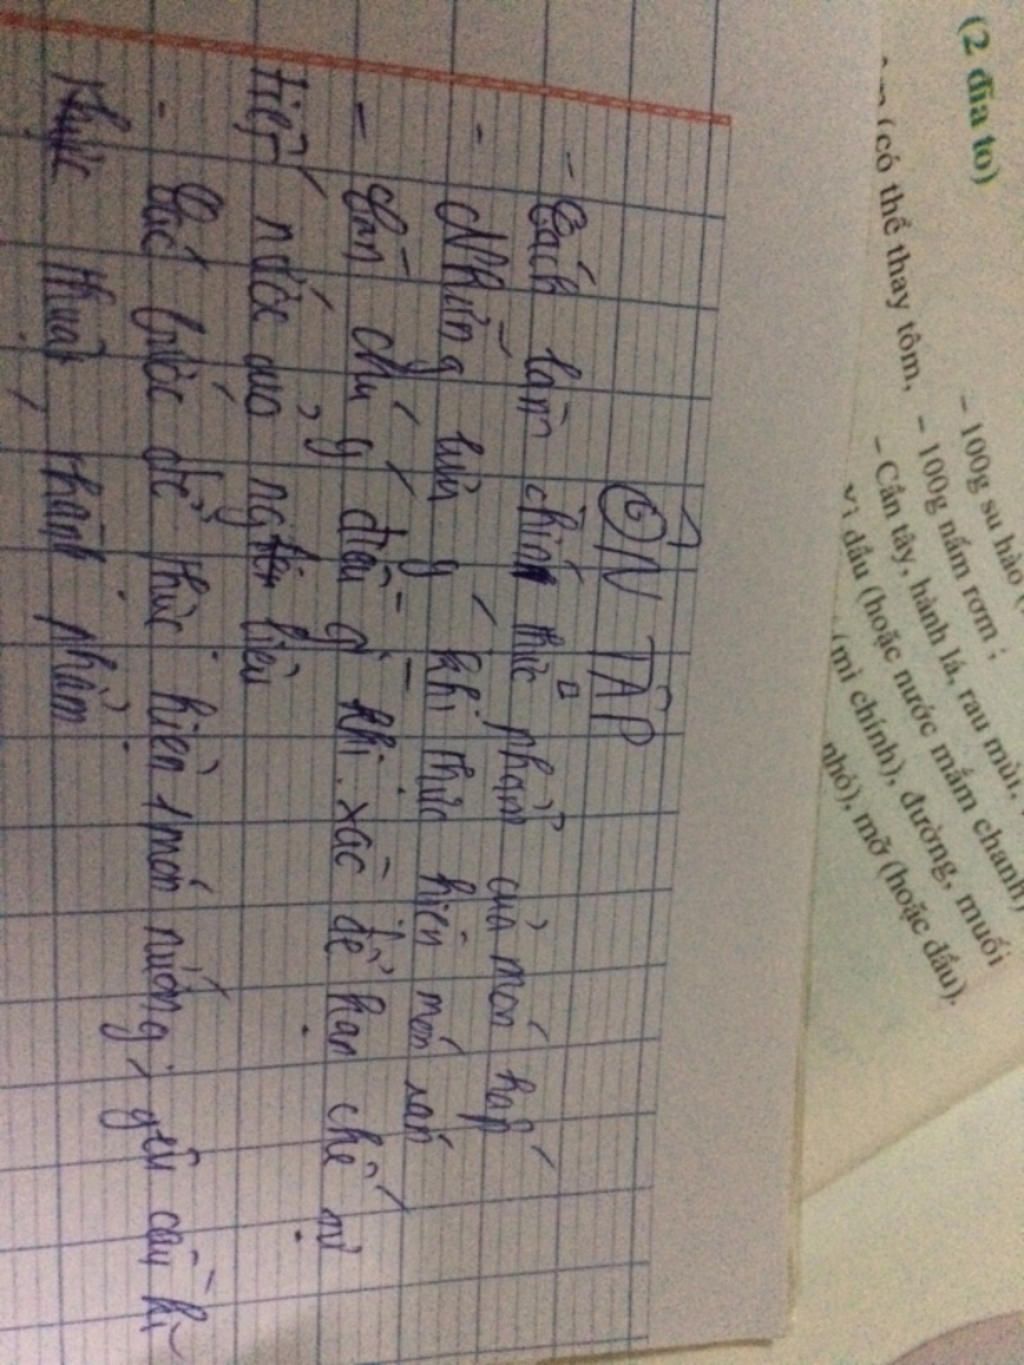 ÔN TẬP
- Cách làm chín thực phẩm của món hấp
- Những lưu ý khi thực hiện món rán
- Cần chú ý điều gì khi xào để hạn chế sự
tiết nước của nguyên liệu
- Các bước để thực hiện 1 món nướng, yêu cầu kĩ
thuật thành phẩm
(2 đĩa to)
(có thể thay tôm,
- 100g su hào (
- 100g nấm rơm ;
- Cần tây, hành lá, rau mùi,
vị dấu (hoặc nước mắm chanh)
(mì chính), đường, muối
nhỏ), mỡ (hoặc dầu).